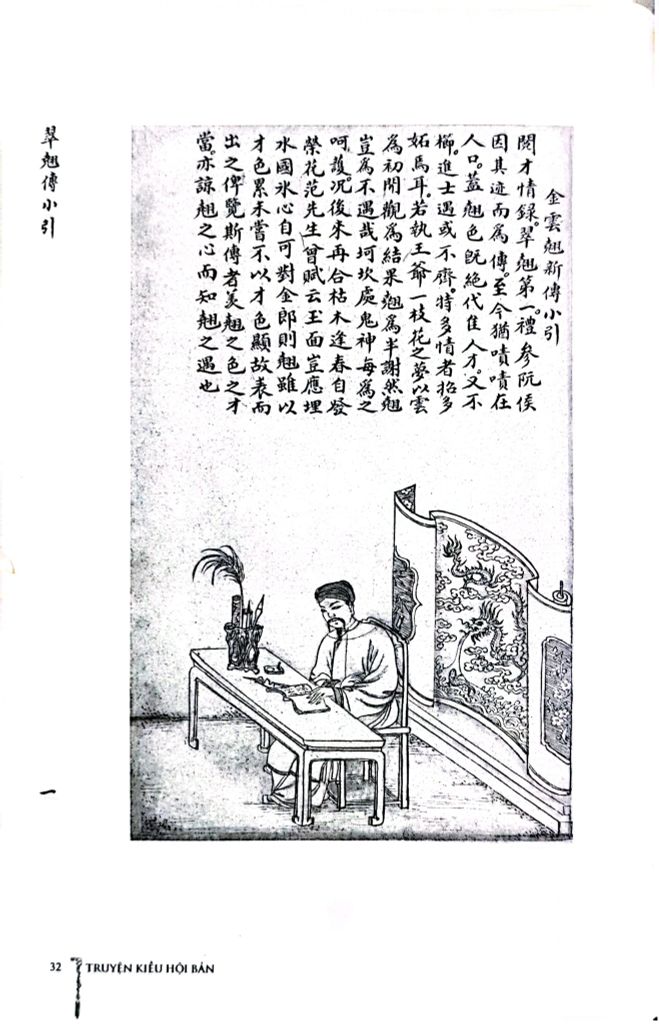 金雲翹新傳小引
閱才情錄。翠翹第一。禮參阮侯
因其迹而為傳。至今猶嘖嘖在
人口。蓋翹色既絕代隹人才。又不
櫛。進士遇或不齊。特多情者招多
妬焉耳。若執王爺一枝花之夢以雲
為初開觀為結果翹為半謝然翹
豈為不遇哉坷坎處鬼神每為之
呵護。况後來再合枯木逢春自發
榮花范先生曾賦云玉面豈應埋
水國氷心自可對金郎則翹雖以
才色累未嘗不以才色顯故表而
出之俾覽斯傳者羙翹之色之才
當。亦諒翹之心而知翹之遇也
翠翹傳小引
一
32 TRUYỆN KIỀU HỘI BẢN